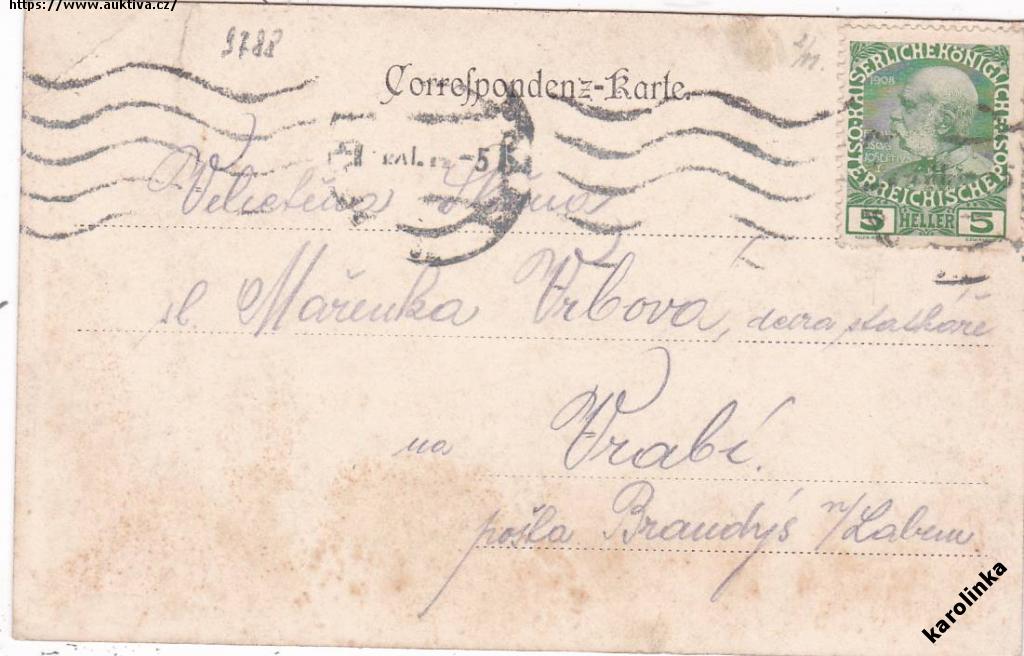 https://www.auktiva.cz/
9788
Correspondenz-Karte.
Velectěna Slečna
sl. Mařenka Vrbova, dcera statkáře
na Vrabí.
pošta Brandýs n/Labem
KAISERLICHE KÖNIGLICHE ÖSTERREICHISCHE POST
1908
5 HELLER 5
karolinka